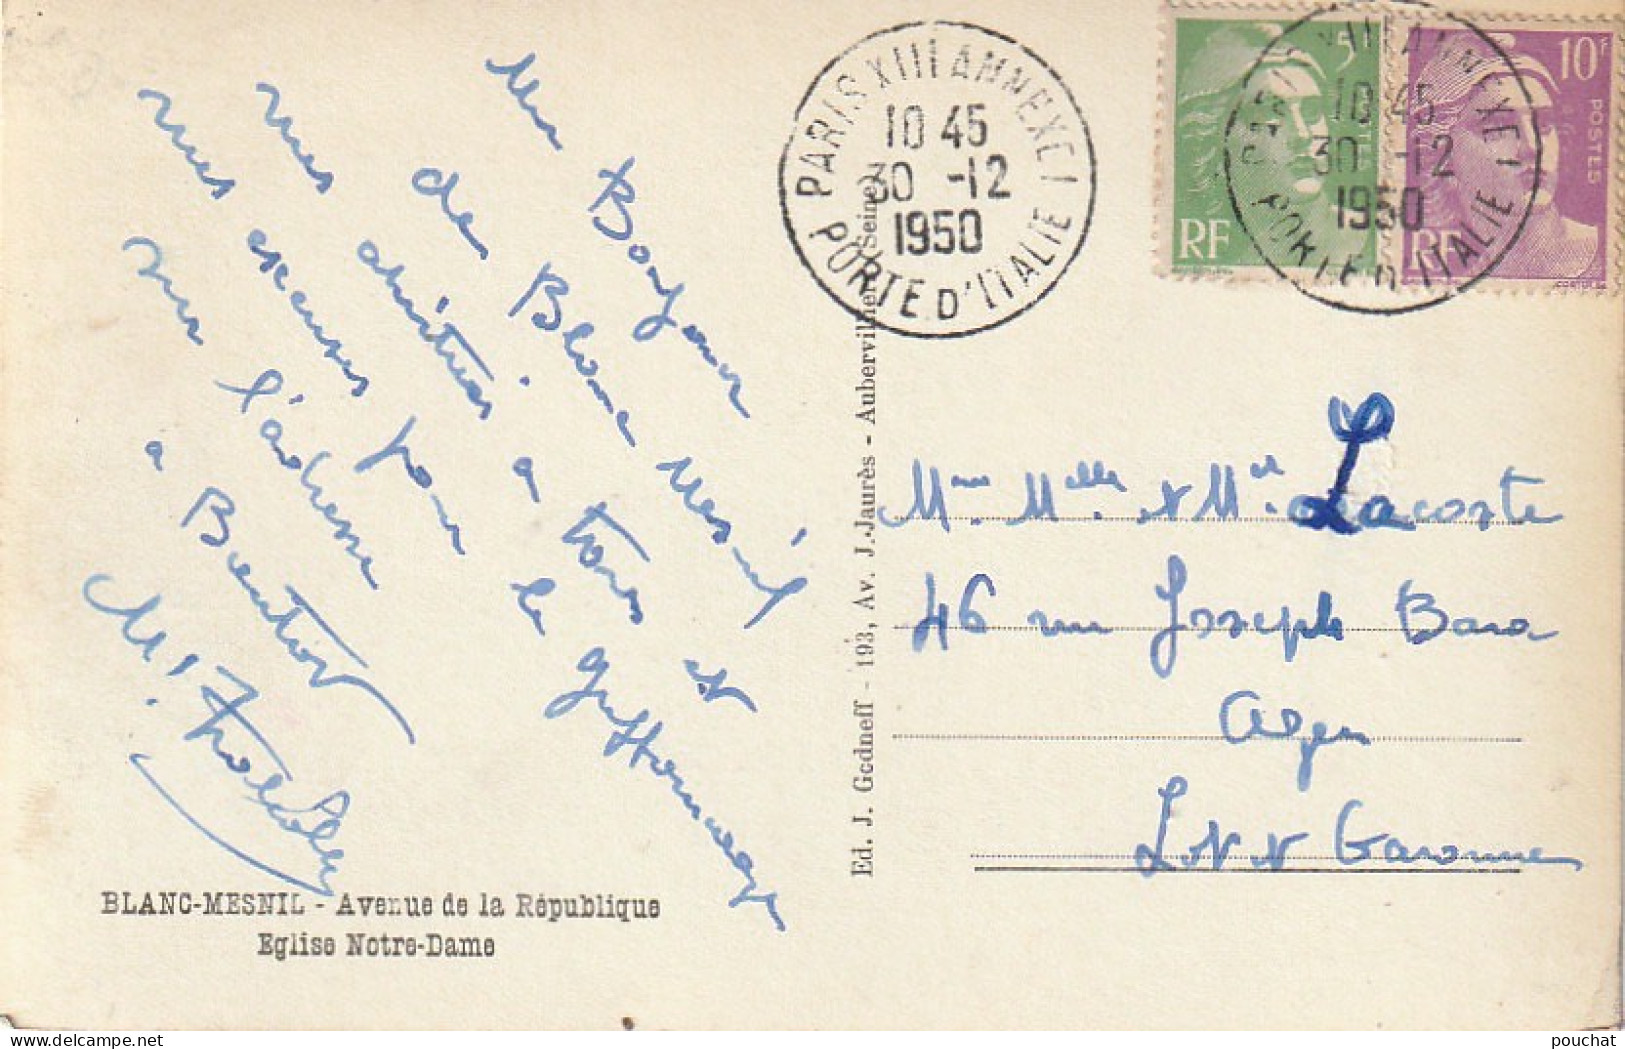 Un Bonjour
de Blanc Mesnil
mes amitiés a tous et
mes excuses pour le griffonnage
sur l'adresse
a Bientôt
BLANC-MESNIL - Avenue de la République
Eglise Notre-Dame
Ed. J. Godneff - 193, Av. J. Jaurès - Aubervilliers (Seine)
PARIS XIII ANNEXE 1
10 45
30 -12
1950
PORTE D'ITALIE
5F
POSTES
RF
10F
POSTES
RF
PARIS XIII ANNEXE 1
10 45
30 -12
1950
PORTE D'ITALIE
Mme Melle & Mr Lacoste
46 rue Joseph Bara
Agen
Lot & Garonne
pouchat